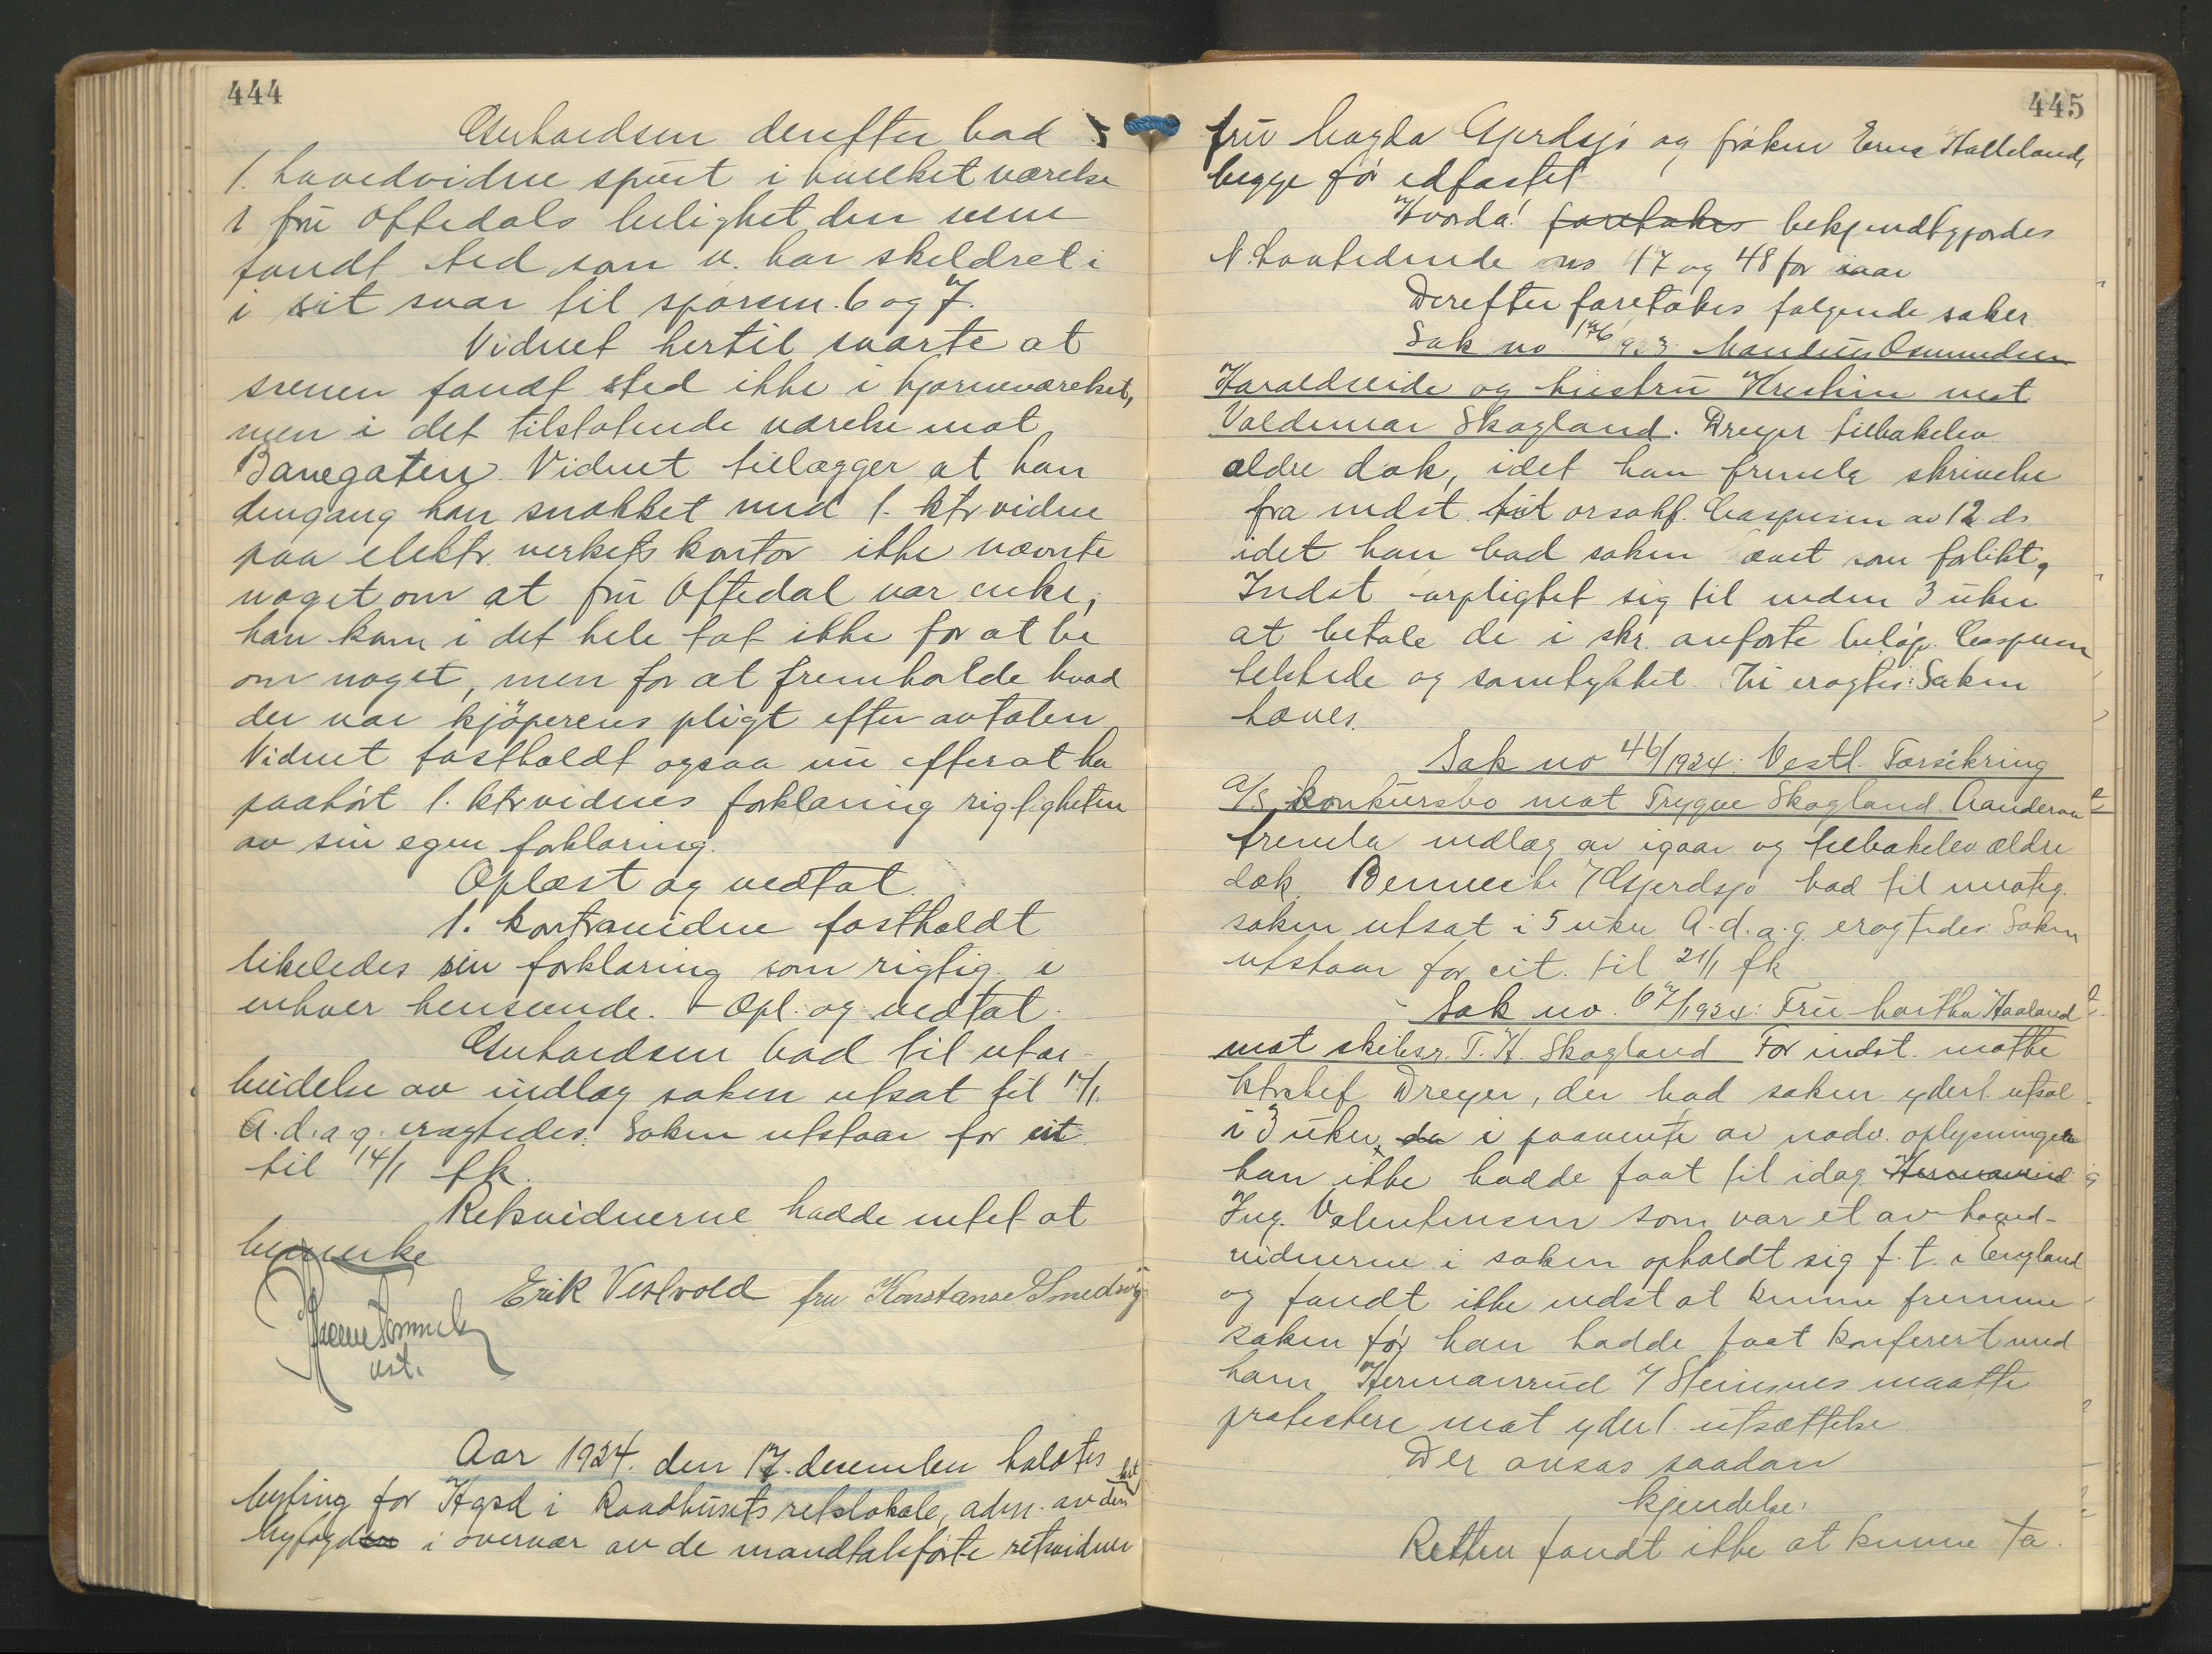 444
Gerhardsen derefter bad
1. hovedvidne spurt i hvilket værelse
i fru Oftedals leilighet den scene
fandt sted som v. har skildret i
i sit svar til spörsm. 6 og 7.
Vidnet hertil svarte at
scenen fandt sted ikke i hjörneværelset,
men i det tilstötende værelse mot
Banegaten. Vidnet tillægger at han
dengang han snakket med 1. ktrvidne
paa elektr. verkets kontor ikke nævnte
noget om at fru Oftedal var enke,
han kom i det hele tat ikke for at be
om noget, men for at fremholde hvad
der var kjöperens pligt efter avtalen
Vidnet fastholdt ogsaa nu efterat ha
paahört 1. ktrvidnes forklaring rigtigheten
av sin egen forklaring.
Oplæst og vedtat
1. kontravidne fastholdt
likeledes sin forklaring som rigtig i
enhver henseende. - Opl. og vedtat.
Gerhardsen bad til utar-
beidelse av indlæg saken utsat til 14/1.
A.d.a.g. eragtedes: Saken utstaar for cit.
til 14/1 fk.
Retsvidnerne hadde intet at
bemerke
Erik Vestvold fru Konstanse Smedsvig
ast.
Aar 1924. den 17. december holdtes
byting for Hgsd i Raadhusets retslokale, adm. av den
byfogden i overvær av de mandtalsförte retsvidner
445
fru Magda Gjerdsjö og fröken Erna Halleland,
begge för edfæstet
Hvorda! foretokes bekjendtgjordes
N. Lovtidende ns 47 og 48 for iaar
Derefter foretokes fölgende saker
Sak no 176/923 Mandius Osmundsen
Haraldseide og hustru Kristine mot
Valdemar Skogland. Dreyer tilbakelev
ældre dok, idet han fremla skrivelse
fra indst. til orsakf. Caspersen av 12 ds
idet han bad saken hævet som forlikt,
Indst forpligtet sig til inden 3 uker
at betale de i skr. anförte belöp. Caspersen
tilstede og samtykket Ti eragtes: Saken
hæves.
Sak no 46/1924: Vestl. Forsikring
a/s konkursbo mot Trygve Skogland. Aanderaa
fremla indlæg av igaar og tilbakelev ældre
dok. Bennecke / Gjerdsjö bad til motig.
saken utsat i 5 uker A.d.a.g. eragtedes: Saken
utstaar for cit. til 21/1 fk
Sak no. 67/1924: Fru Martha Haaland
mot skibsr. T. H. Skogland For indst. mötte
ktrchef Dreyer, der bad saken yderl. utsat
i 3 uker, da i paavente av nödv. oplysninger
han ikke hadde faat til idag. Hermanrud
Ing. Valentinsen som var et av hoved-
vidnerne i saken opholdt sig f. t. i England
og fandt ikke indst at kunne fremme
saken för han hadde faat konferert med
ham Hermanrud / Steinsnes maatte
protestere mot yderl. utsættelse
Der avsas saadan
kjendelse:
Retten fandt ikke at kunne ta